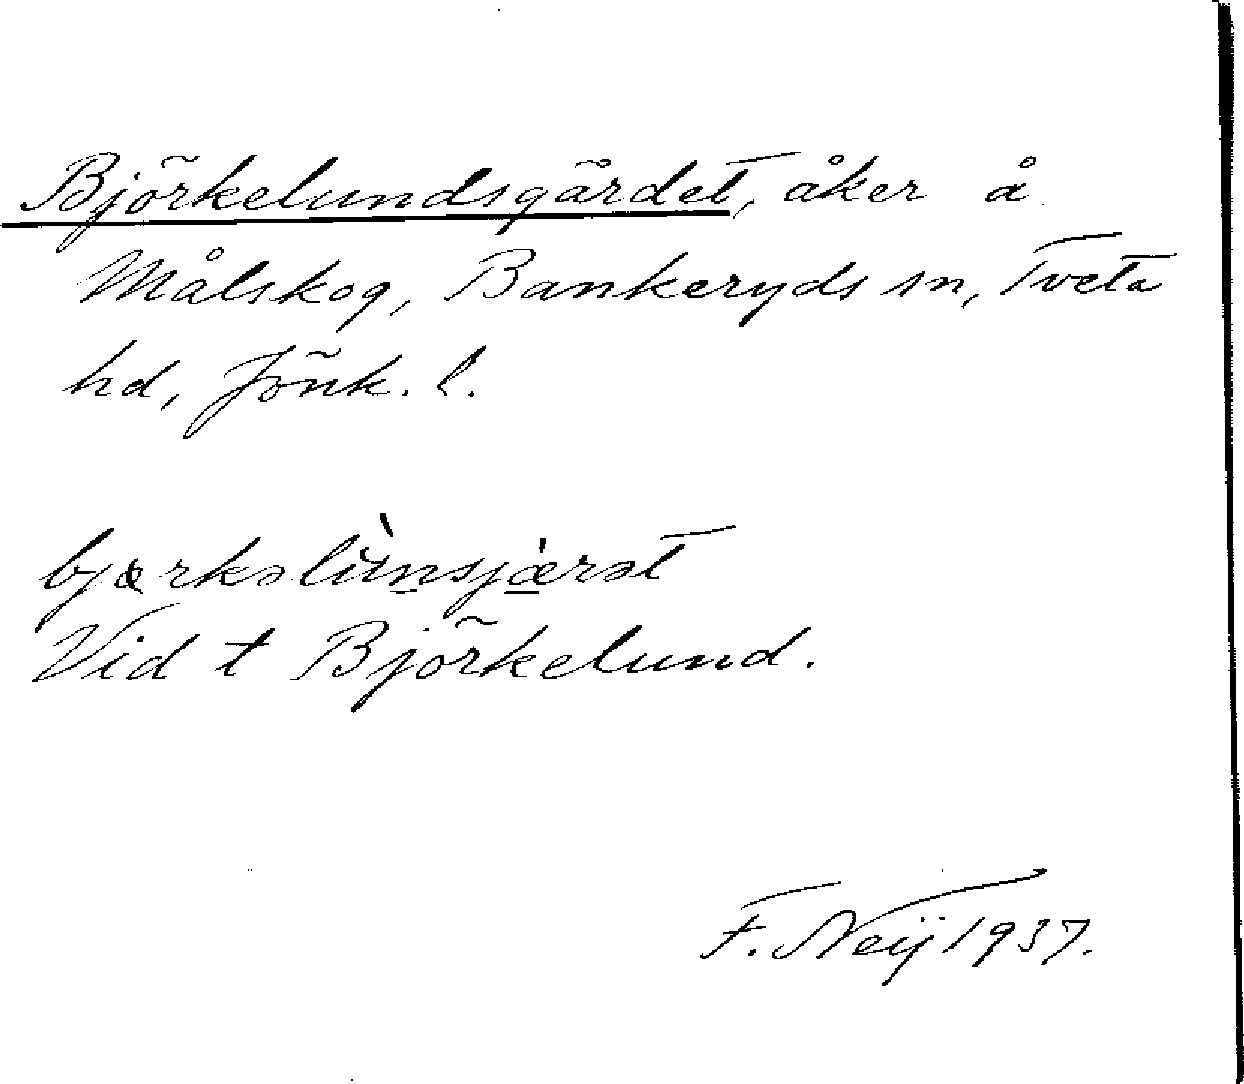 Björkelundsgärdet, åker å
Målskog, Bankeryds sn, Tveta
hd, Jönk. l.
bjærkəlùnsjæ̀rət
Vid t Björkelund.
F. Neij 1937.